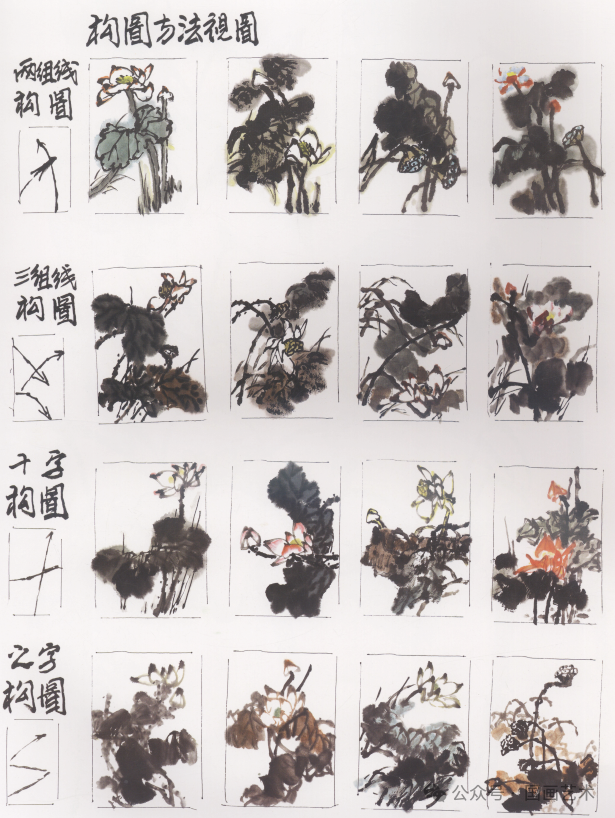 构圖方法視圖
两组线
构圖
三组线
构圖
十字
构圖
之字
构圖
公众号·国画艺术